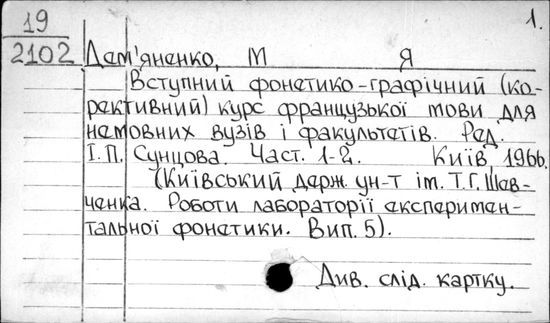 19
2102
1.
Дем'яненко, М Я
Вступний фонетико-графічний (ко-
рективний) курс французької мови для
немовних вузів і факультетів. Ред.
І.П. Сунцова. Част. 1-2. Київ, 1966.
(Київський держ. ун-т ім. Т.Г. Шев-
ченка. Роботи лабораторії експеримен-
тальної фонетики. Вип. 5).
Див. слід. картку.